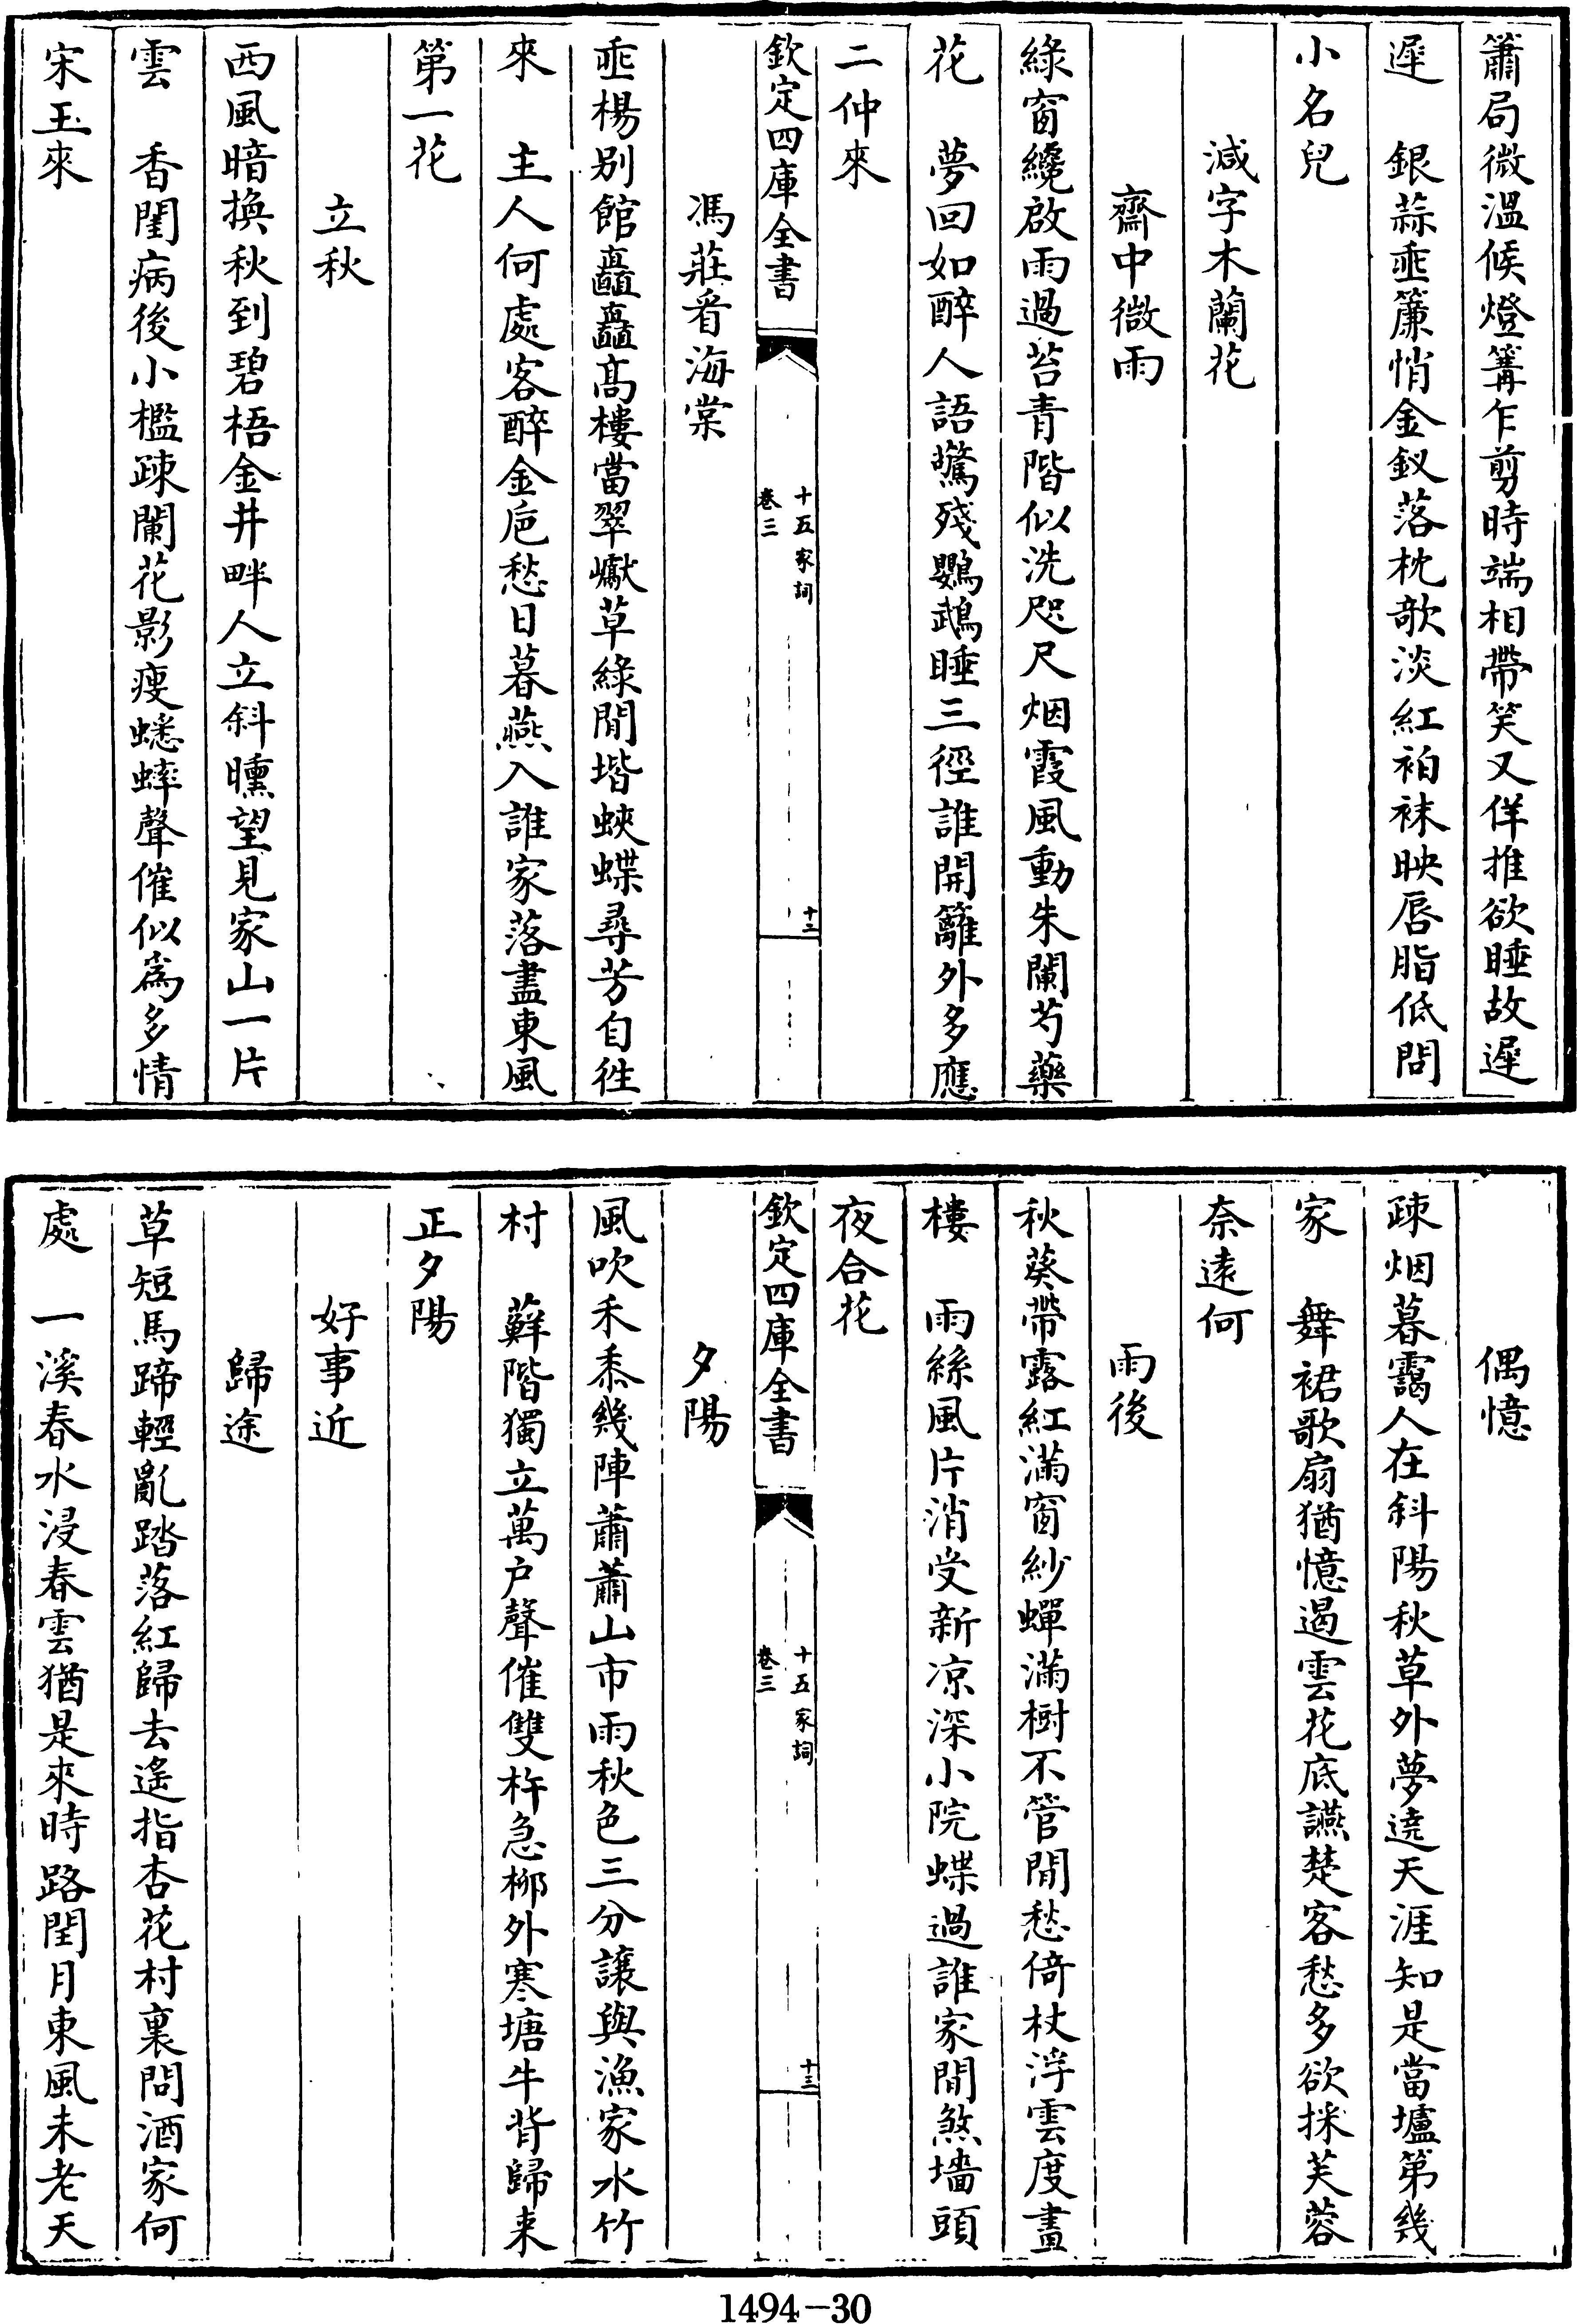 簫局微溫候燈篝乍剪時端相帶笑又佯推欲睡故遲
遲　銀蒜垂簾悄金釵落枕欹淡紅袙袜映唇脂低問
小名兒
減字木蘭花
齋中微雨
綠窗纔啟雨過苔青階似洗咫尺烟霞風動朱闌芍藥
花　夢回如醉人語驚殘鸚鵡睡三徑誰開籬外多應
二仲來
欽定四庫全書
十五家詞
卷三
十二
馮莊看海棠
垂楊别館矗矗高樓當翠巘草綠閒堦蛺蝶尋芳自徃
來　主人何處客醉金卮愁日暮燕入誰家落盡東風
第一花
立秋
西風暗換秋到碧梧金井畔人立斜曛望見家山一片
雲　香閨病後小檻疎闌花影瘦蟋蟀聲催似為多情
宋玉來
偶憶
疎烟暮靄人在斜陽秋草外夢遶天涯知是當壚第幾
家　舞裙歌扇猶憶遏雲花底讌楚客愁多欲採芙蓉
奈遠何
雨後
秋葵帶露紅滿窗紗蟬滿樹不管閒愁倚杖浮雲度畫
樓　雨絲風片消受新凉深小院蝶過誰家閒煞墻頭
夜合花
欽定四庫全書
十五家詞
卷三
十三
夕陽
風吹禾黍幾陣蕭蕭山市雨秋色三分讓與漁家水竹
村　蘚階獨立萬户聲催雙杵急栁外寒塘牛背歸来
正夕陽
好事近
歸途
草短馬蹄輕亂踏落紅歸去遙指杏花村裏問酒家何
處　一溪春水浸春雲猶是來時路閏月東風未老天
1494-30